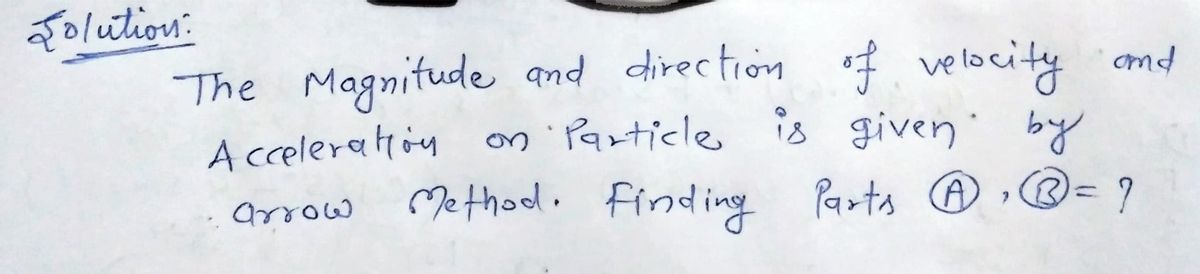 Solution:
The Magnitude and direction of velocity and
Acceleration on Particle is given by
arrow Method. Finding Parts Ⓐ, Ⓑ = ?